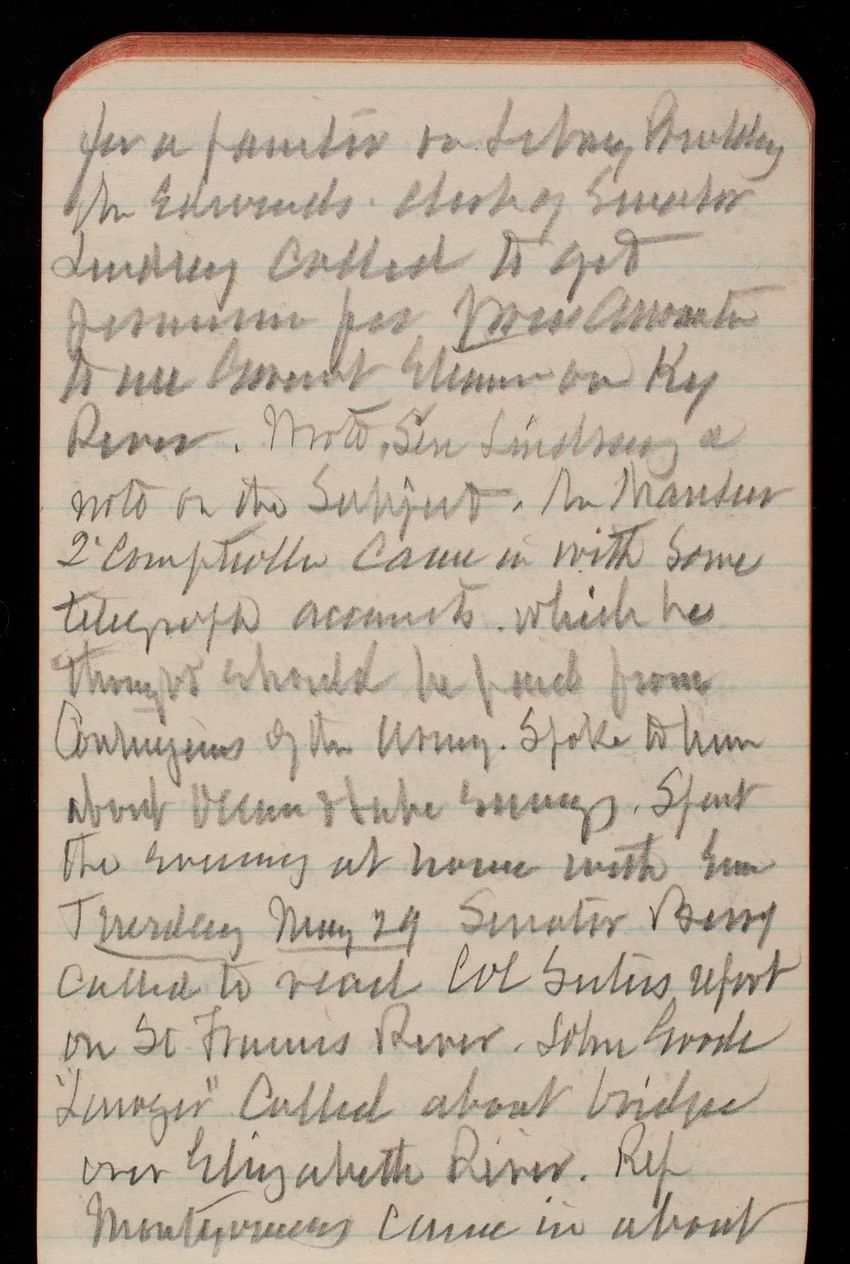 for a position on Library Building
Mr Edwards clerk of Senator
Lindsay called to get
permission for Press Association
to use Govmt Steamer on Ky
River. Wrote Sen Lindsay a
note on the Subject. Mr Mansur
2d Comptroller Came in with Some
telegraph accounts which he
thought should be paid from
Contingencies of the Army. Spoke to him
about Survey. Spent
the evening at home with Em
Tuesday May 29 Senator Berry
called to read Col Suters report
on St Francis River. John Goode
"Lawyer" Called about bridge
over Elizabeth River. Rep
Montgomery came in about